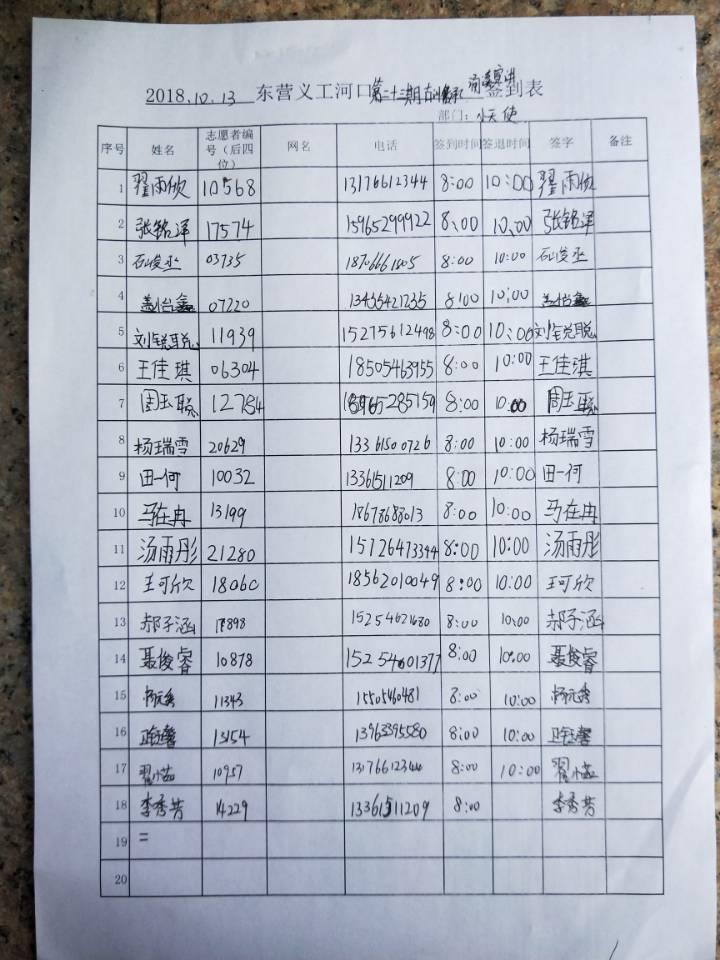 2018.10.13 东营义工河口第二十三期 签到表
部门：小天使
序号 姓名 志愿者编号（后四位） 网名 电话 签到时间 签退时间 签字 备注
1 翟雨欣 10568 13176612344 8:00 10:00 翟雨欣
2 张铭泽 17574 15965299922 8:00 10:00 张铭泽
3 石俊丞 03735 18706661805 8:00 10:00 石俊丞
4 盖怡鑫 07220 13455421235 8:00 10:00 盖怡鑫
5 11939 15275612498 8:00 10:00
6 王佳琪 06304 18505463955 8:00 10:00 王佳淇
7 周玉聪 12784 8:00 10:00 周玉聪
8 杨瑞雪 20629 13361500726 8:00 10:00 杨瑞雪
9 田一何 10032 13361511209 8:00 10:00 田一何
10 马在冉 13199 18678688013 8:00 10:00 马在冉
11 汤雨彤 21280 15726473344 8:00 10:00 汤雨彤
12 王可欣 18060 18562010049 8:00 10:00 王可欣
13 郝子涵 15254621680 8:00 10:00 郝子涵
14 聂俊睿 10878 15254601377 8:00 10:00 聂俊睿
15 11343 15505460481 8:00 10:00
16 13154 13963395580 8:00 10:00
17 10957 13176612344 8:00 10:00
18 李秀芳 14229 13361511209 8:00 李秀芳
19 =
20